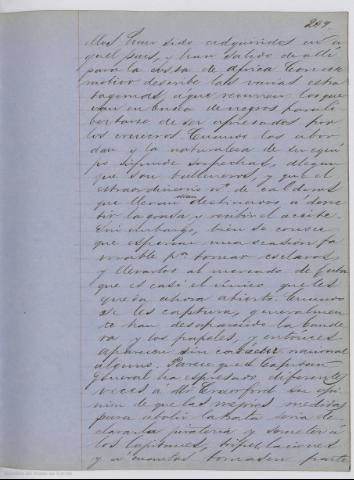 249
han sido adquiridos en a
quel pais, y han salido de alli
para la costa de Africa. Con este
motivo describe las varias estra
tagemas á que recurren los que
van en busca de negros para li
bertarse de ser apresados por
los cruceros. Cuando los abor
dan y la naturaleza de su equi
po infunde sospechas, alegan
que son balleneros, y que el
extraordinario no. de calderas
que llevan sean destinarse á derre
tir la grasa y el aceite.
Sin embargo, bien se conoce
que esperan una ocasion fa
vorable pa. tomar esclavos,
y llevarlos al mercado de Cuba
que es casi el único que les
queda ahora abierto. Cuando
se les captura, generalmen
te han desaparecido la bande
ra y los papeles, y entónces
aparecen sin carácter nacional
alguno. Parece que el Capitan
General ha espresado diferentes
veces á Mr Crawford su opi
nion de que las mejores medidas
para abolir la trata seria de
clararla piratería y someter á
los capitanes, tripulaciones
y á cuantos tomasen parte